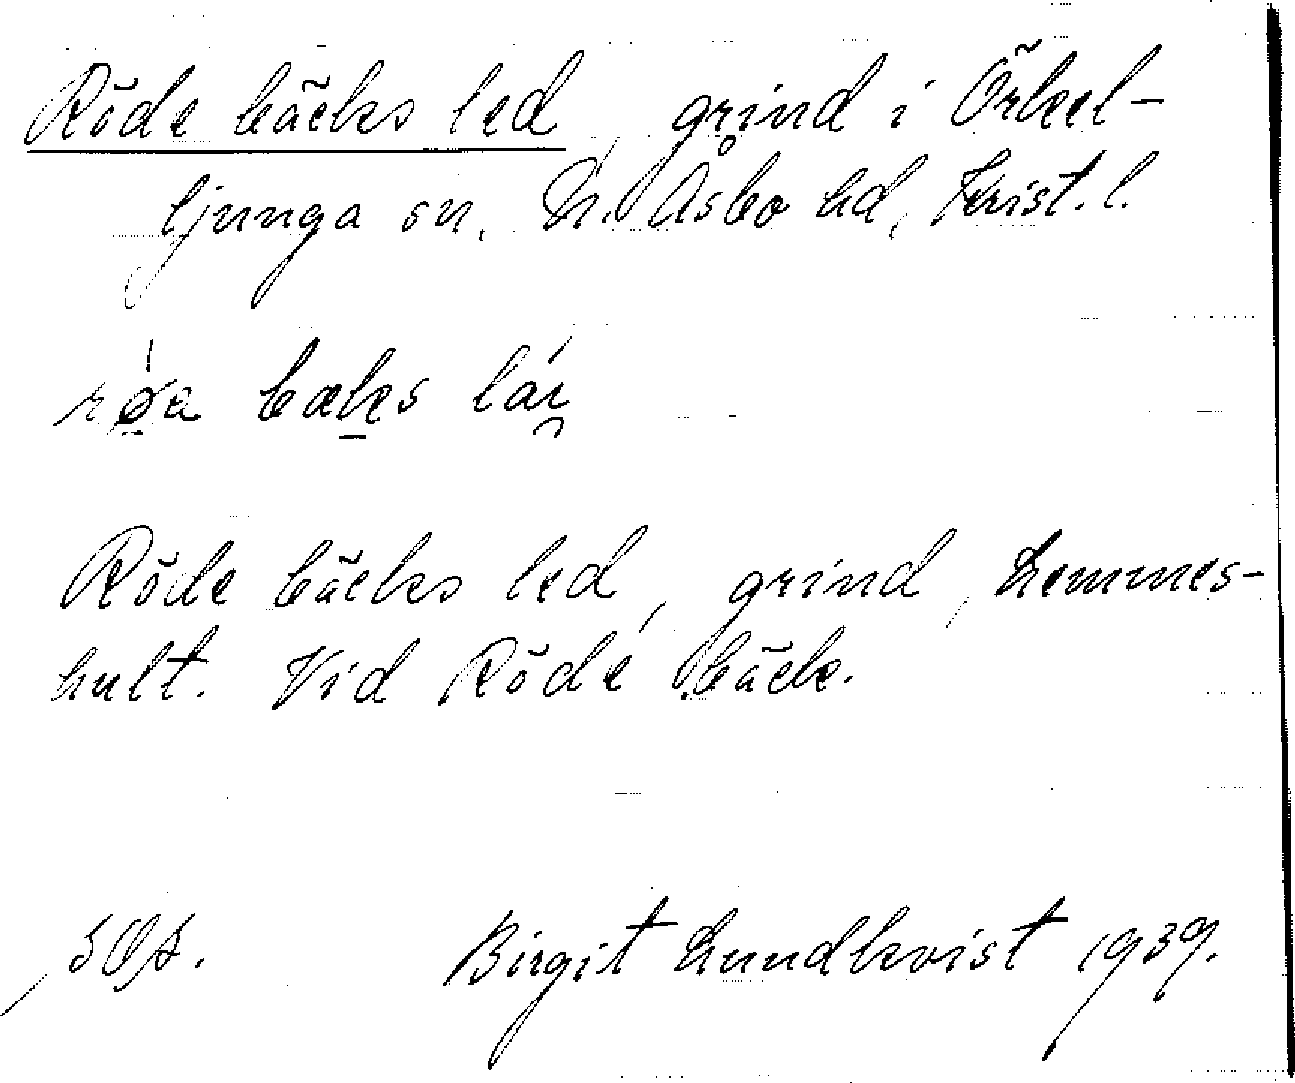 Röde bäcks led, grind i Örkel-
ljunga sn. N. Åsbo hd, Krist. l.
röa bæks lái
Röde bäcks led, grind, Lemmes-
hult. Vid Röde bäck.
Birgit Lundkvist 1939.